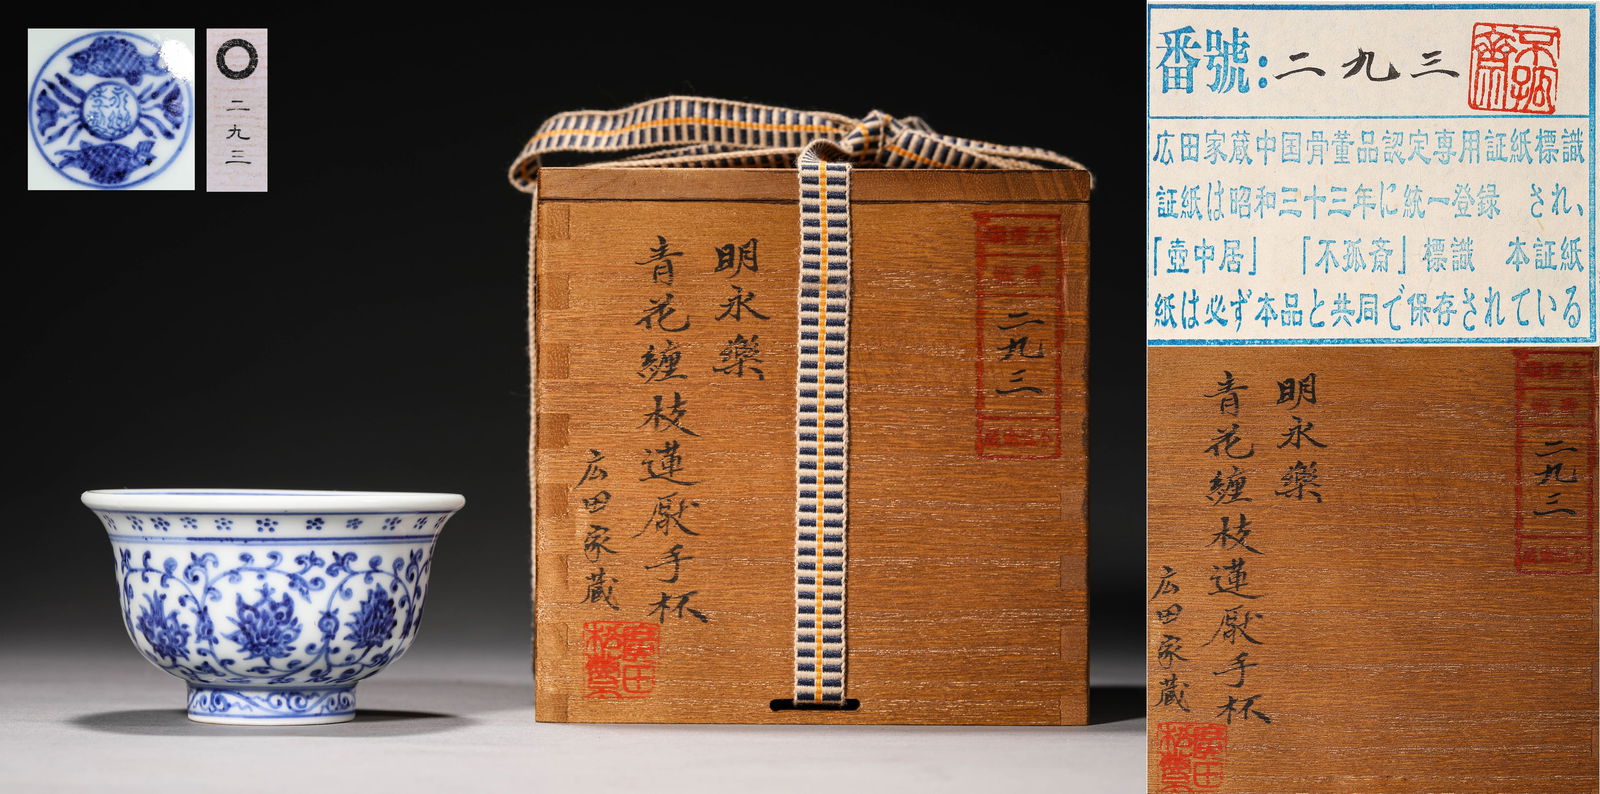 永樂年製
二九三
明永樂
青花纏枝蓮厭手杯
広田家蔵
二九三
番號：二九三
不孤齋
広田家蔵中国骨董品認定専用証紙標識
証紙は昭和三十三年に統一登録 され、
「壺中居」 「不孤斎」標識 本証紙
紙は必ず本品と共同で保存されている
明永樂
青花纏枝蓮厭手杯
広田家蔵
二九三